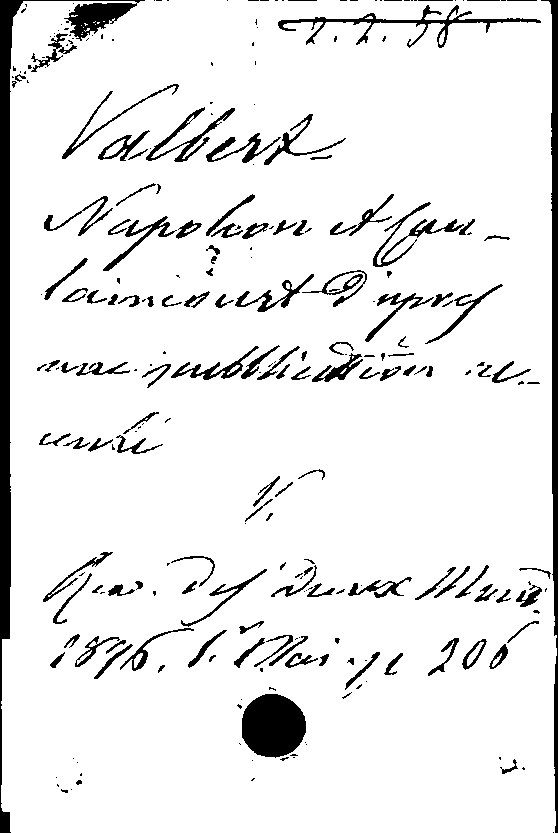 2.2.58.
Valbert.
Napoleon et Cau-
laincourt d'apres
une publication re-
cente
V.
Rev. des Deux Mond.
1896. 1.r Mai. p 206